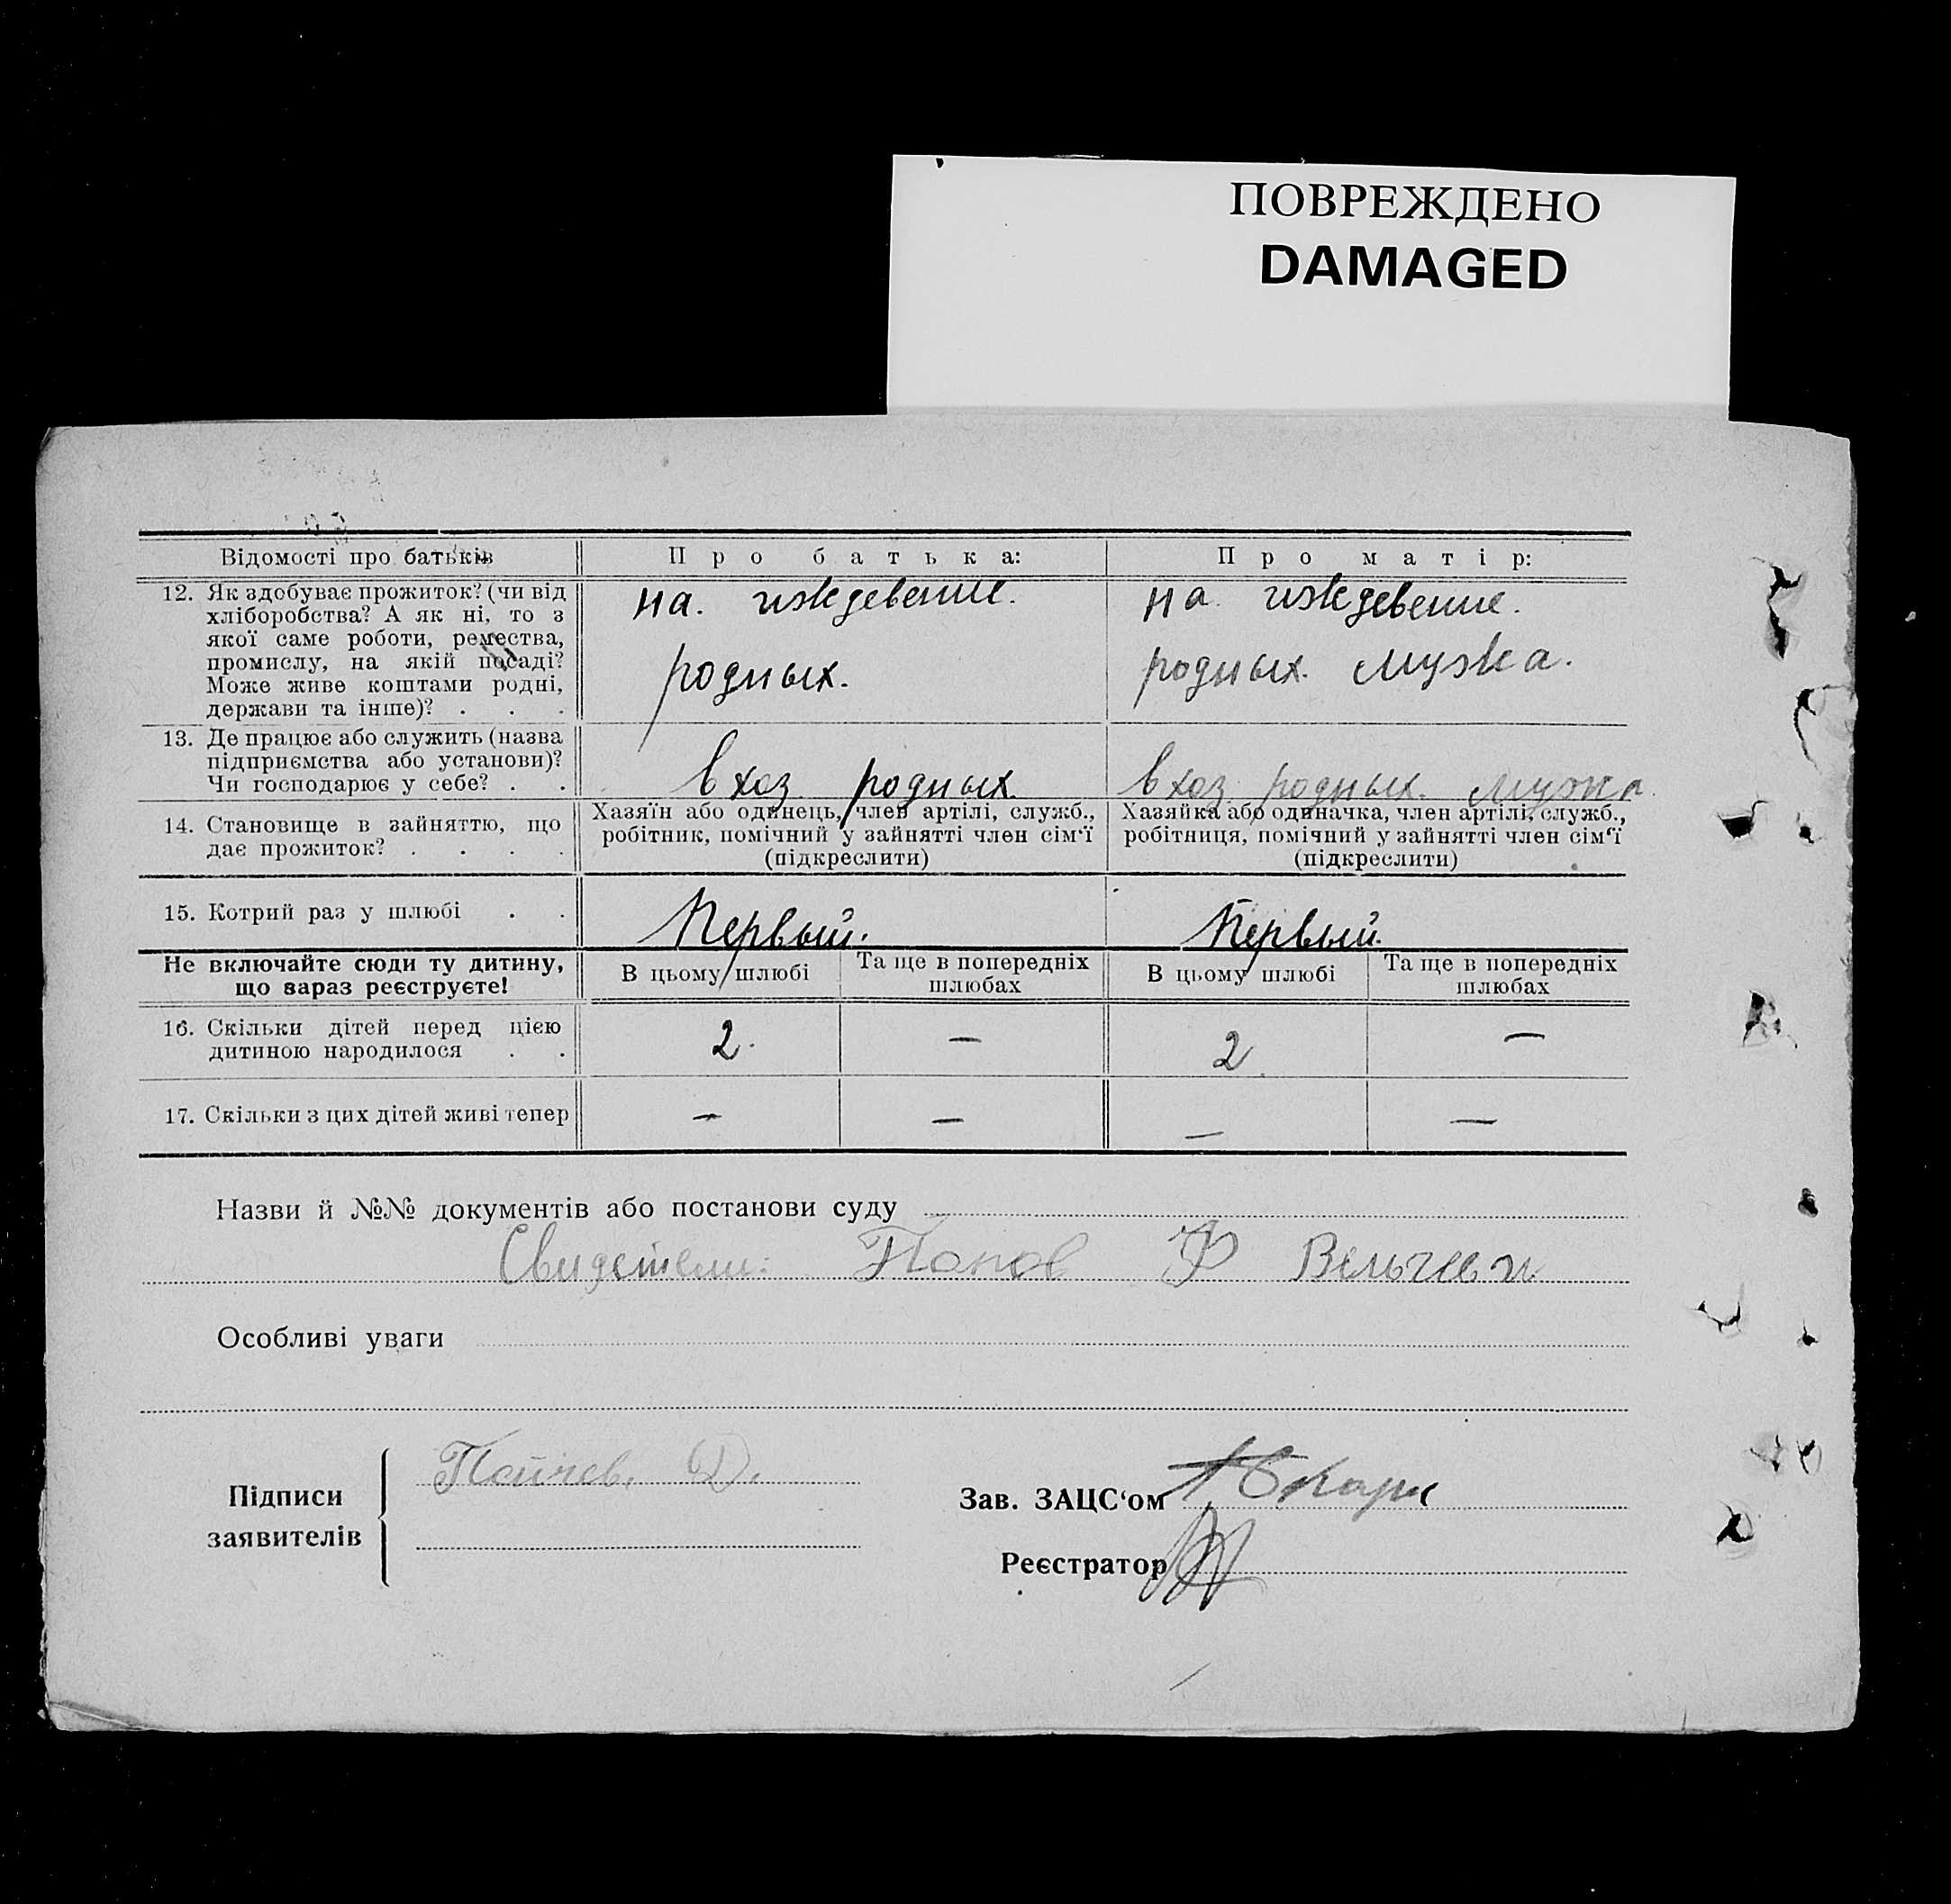 ПОВРЕЖДЕНО
DAMAGED
Відомості про батьків
Про батька:
Про матір:
12. Як здобуває прожиток? (чи від
хліборобства? А як ні, то з
якої саме роботи, ремества,
промислу, на якій посаді?
Може живе коштами родні,
держави та інше)? . . .
на. иждевение.
родных.
на иждевение.
родных. мужа.
13. Де працює або служить (назва
підприємства або установи)?
Чи господарює у себе? . .
в хоз. родных.
в хоз. родных. мужа.
14. Становище в зайняттю, що
дає прожиток? . . . .
Хазяїн або одинець, член артілі, служб.,
робітник, помічний у зайнятті член сім'ї
(підкреслити)
Хазяйка або одиначка, член артілі, служб.,
робітниця, помічний у зайнятті член сім'ї
(підкреслити)
15. Котрий раз у шлюбі . .
Первый.
Первый.
Не включайте сюди ту дитину,
що зараз реєструєте!
В цьому шлюбі
Та ще в попередніх
шлюбах
В цьому шлюбі
Та ще в попередніх
шлюбах
16. Скільки дітей перед цією
дитиною народилося . .
2.
—
2.
—
17. Скільки з цих дітей живі тепер
—
—
—
—
Назви й №№ документів або постанови суду
Свидетели: Попов Ф
Особливі уваги
Підписи
заявителів
Д.
Зав. ЗАЦС'ом
Реєстратор